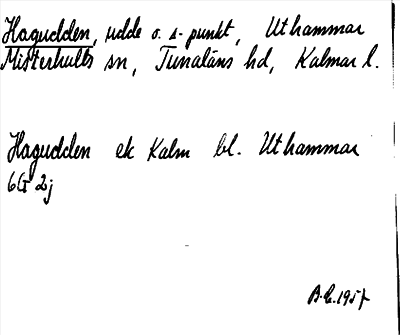 Hagudden, udde o. s-punkt, Uthammar
Misterhults sn, Tunaläns hd, Kalmar l.
Hagudden ek Kalm bl. Uthammar
6G 2j
1957